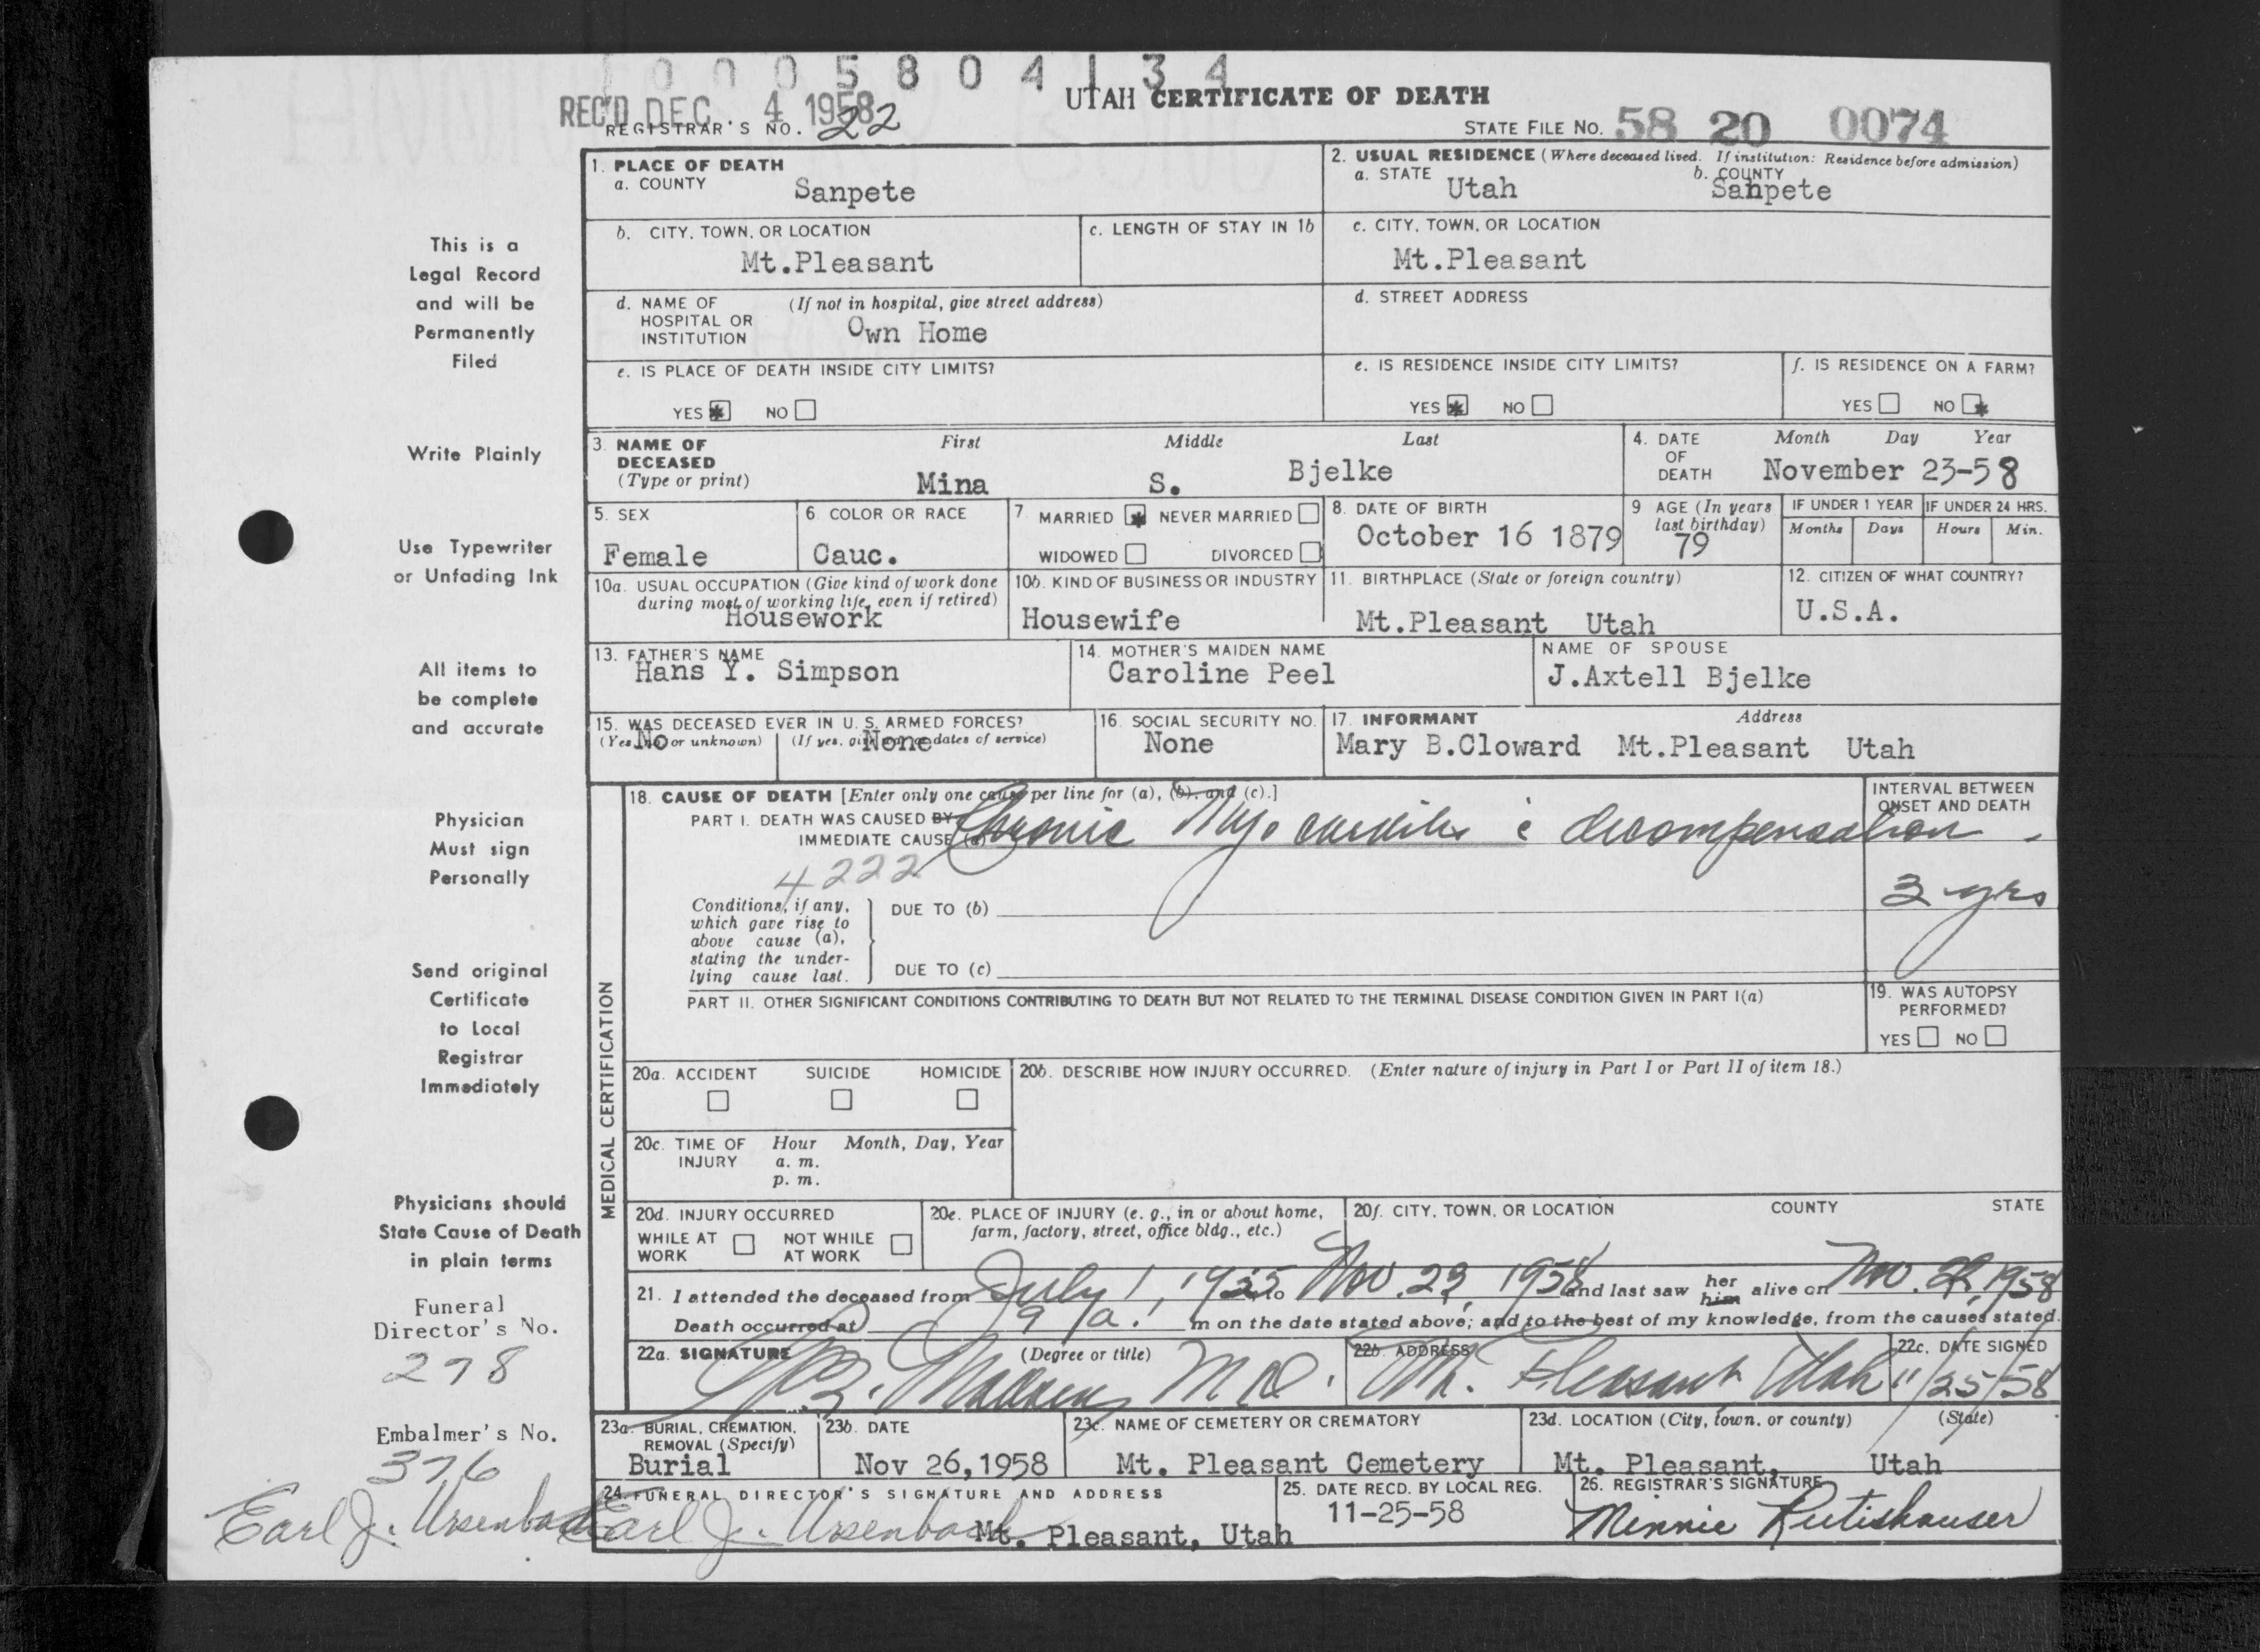 0005804134
REC'D DEC 4 1958
UTAH CERTIFICATE OF DEATH
REGISTRAR'S NO. 22
STATE FILE NO. 58 20 0074
This is a
Legal Record
and will be
Permanently
Filed
Write Plainly
Use Typewriter
or Unfading Ink
All items to
be complete
and accurate
Physician
Must sign
Personally
Send original
Certificate
to Local
Registrar
Immediately
Physicians should
State Cause of Death
in plain terms
Funeral
Director's No.
278
Embalmer's No.
376
Earl J. Ursenbach
1. PLACE OF DEATH
a. COUNTY
Sanpete
2. USUAL RESIDENCE (Where deceased lived. If institution: Residence before admission)
a. STATE Utah
b. COUNTY Sanpete
b. CITY, TOWN, OR LOCATION
Mt.Pleasant
c. LENGTH OF STAY IN 1b
c. CITY, TOWN, OR LOCATION
Mt.Pleasant
d. NAME OF HOSPITAL OR INSTITUTION (If not in hospital, give street address)
Own Home
d. STREET ADDRESS
e. IS PLACE OF DEATH INSIDE CITY LIMITS?
YES NO
e. IS RESIDENCE INSIDE CITY LIMITS?
YES NO
f. IS RESIDENCE ON A FARM?
YES NO
3. NAME OF DECEASED (Type or print)
First Middle Last
Mina S. Bjelke
4. DATE OF DEATH
Month Day Year
November 23-58
5. SEX
Female
6. COLOR OR RACE
Cauc.
7 MARRIED NEVER MARRIED
WIDOWED DIVORCED
8. DATE OF BIRTH
October 16 1879
9 AGE (In years last birthday)
79
IF UNDER 1 YEAR
Months Days
IF UNDER 24 HRS.
Hours Min.
10a. USUAL OCCUPATION (Give kind of work done during most of working life, even if retired)
Housework
10b. KIND OF BUSINESS OR INDUSTRY
Housewife
11. BIRTHPLACE (State or foreign country)
Mt.Pleasant Utah
12. CITIZEN OF WHAT COUNTRY?
U.S.A.
13. FATHER'S NAME
Hans Y. Simpson
14. MOTHER'S MAIDEN NAME
Caroline Peel
NAME OF SPOUSE
J.Axtell Bjelke
15. WAS DECEASED EVER IN U. S. ARMED FORCES?
(Yes, no, or unknown) (If yes, give war or dates of service)
No None
16. SOCIAL SECURITY NO.
None
17. INFORMANT Address
Mary B.Cloward Mt.Pleasant Utah
MEDICAL CERTIFICATION
18. CAUSE OF DEATH [Enter only one cause per line for (a), (b), and (c).]
PART I. DEATH WAS CAUSED BY
IMMEDIATE CAUSE (a) Chronic Myocarditis c decompensation
4222
INTERVAL BETWEEN ONSET AND DEATH
3 yrs
Conditions, if any,
which gave rise to
above cause (a),
stating the under-
lying cause last.
DUE TO (b)
DUE TO (c)
PART II. OTHER SIGNIFICANT CONDITIONS CONTRIBUTING TO DEATH BUT NOT RELATED TO THE TERMINAL DISEASE CONDITION GIVEN IN PART I(a)
19. WAS AUTOPSY PERFORMED?
YES NO
20a. ACCIDENT SUICIDE HOMICIDE
20b. DESCRIBE HOW INJURY OCCURRED. (Enter nature of injury in Part I or Part II of item 18.)
20c. TIME OF INJURY
Hour Month, Day, Year
a. m.
p. m.
20d. INJURY OCCURRED
WHILE AT WORK NOT WHILE AT WORK
20e. PLACE OF INJURY (e. g., in or about home, farm, factory, street, office bldg., etc.)
20f. CITY, TOWN, OR LOCATION COUNTY STATE
21. I attended the deceased from July 1, 1955 to Nov. 23, 1958 and last saw her him alive on Nov. 1958
Death occurred at 9 a. m on the date stated above; and to the best of my knowledge, from the causes stated.
22a. SIGNATURE (Degree or title)
Madsen M D.
22b. ADDRESS
Mt. Pleasant Utah
22c. DATE SIGNED
11/25/58
23a. BURIAL, CREMATION, REMOVAL (Specify)
Burial
23b. DATE
Nov 26,1958
23c. NAME OF CEMETERY OR CREMATORY
Mt. Pleasant Cemetery
23d. LOCATION (City, town, or county) (State)
Mt. Pleasant, Utah
24. FUNERAL DIRECTOR'S SIGNATURE AND ADDRESS
Earl J. Ursenbach Mt. Pleasant, Utah
25. DATE RECD. BY LOCAL REG.
11-25-58
26. REGISTRAR'S SIGNATURE
Minnie Rutishauser